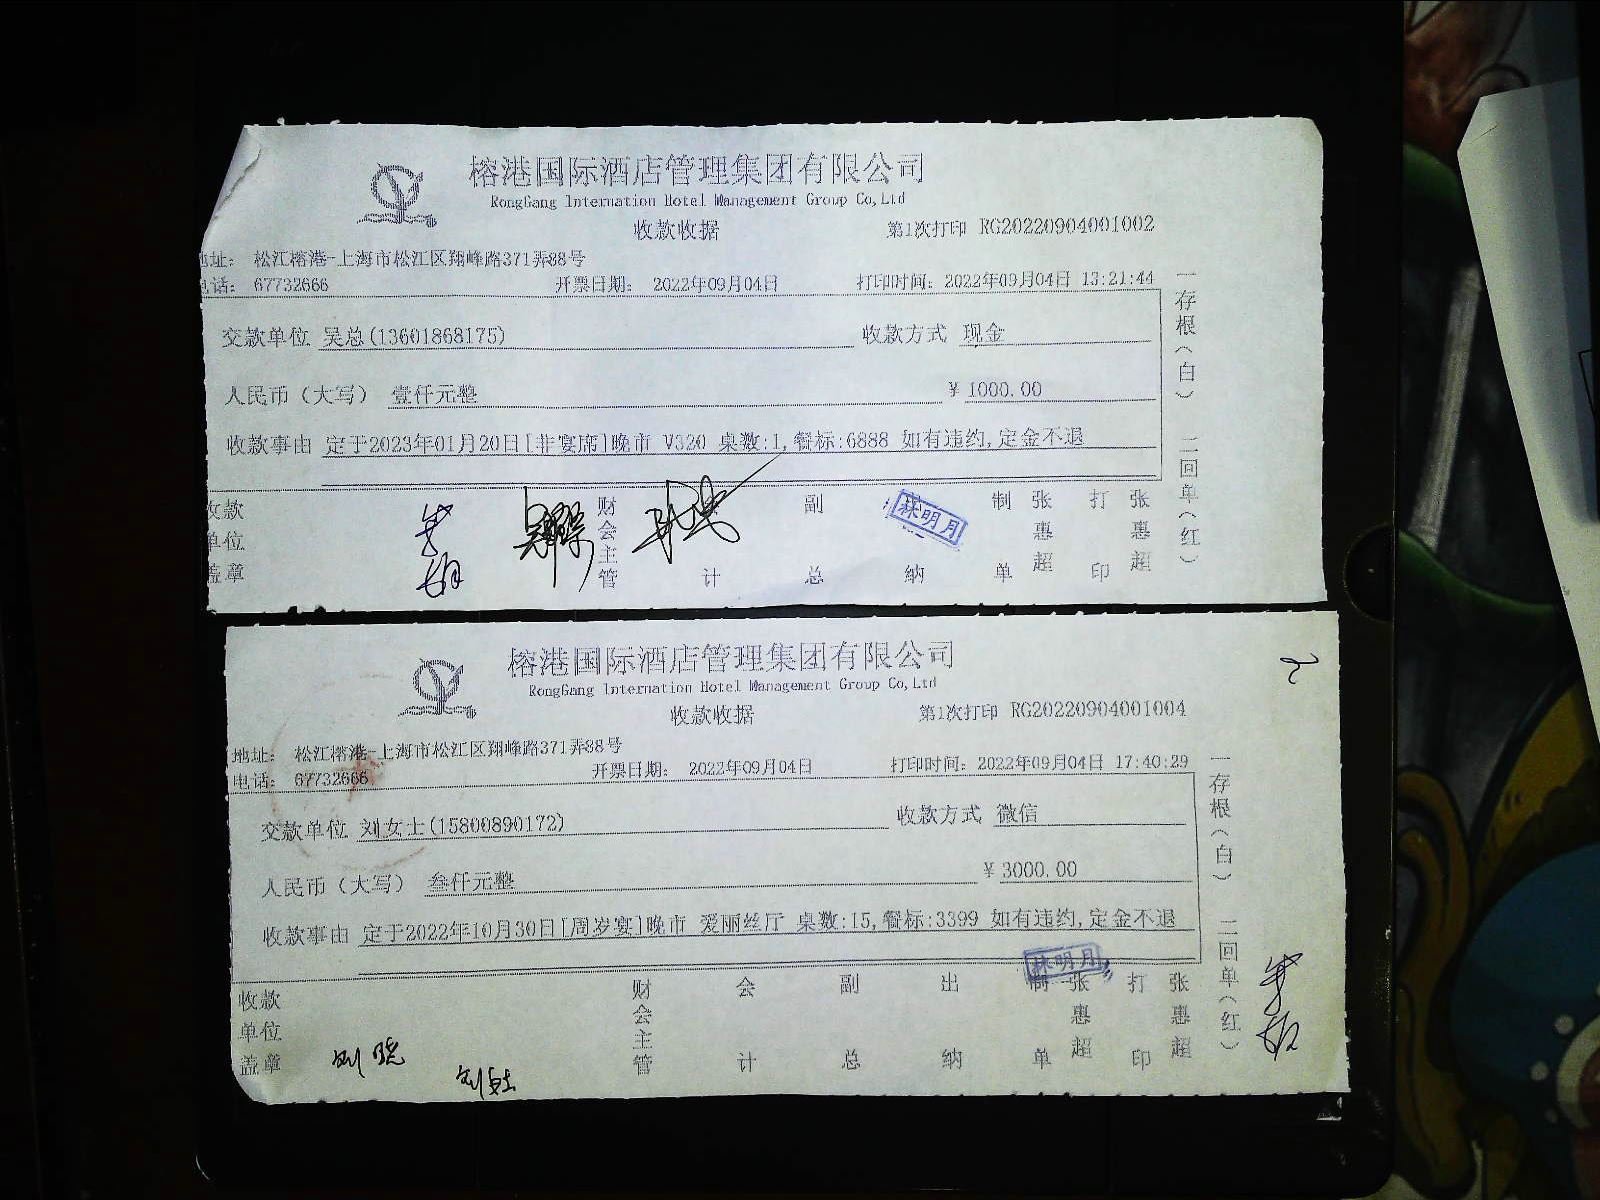 榕港国际酒店管理集团有限公司
RongGang Internation Hotel Management Group Co,Ltd
收款收据
第1次打印 RG20220904001002
地址： 松江榕港-上海市松江区翔峰路371弄88号
电话： 67732666
开票日期： 2022年09月04日
打印时间：2022年09月04日 13:21:44
交款单位 吴总(13601868175)
收款方式 现金
人民币（大写） 壹仟元整
￥1000.00
收款事由 定于2023年01月20日[非宴席]晚市 V320 桌数:1,餐标:6888 如有违约,定金不退
一存根（白） 二回单（红）
收款单位盖章
财会主管
计
副总
林明月
纳
制单
张惠超
打印
张惠超
榕港国际酒店管理集团有限公司
RongGang Internation Hotel Management Group Co,Ltd
收款收据
第1次打印 RG20220904001004
地址： 松江榕港-上海市松江区翔峰路371弄88号
电话： 67732666
开票日期： 2022年09月04日
打印时间：2022年09月04日 17:40:29
交款单位 刘女士(15800890172)
收款方式 微信
人民币（大写） 叁仟元整
￥3000.00
收款事由 定于2022年10月30日[周岁宴]晚市 爱丽丝厅 桌数:15,餐标:3399 如有违约,定金不退
一存根（白） 二回单（红）
收款单位盖章
财会主管
会计
副总
出纳
林明月
制单
张惠超
打印
张惠超